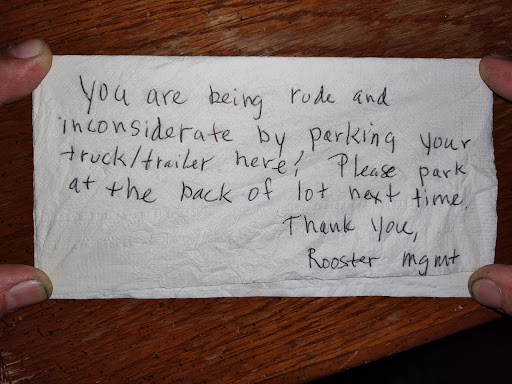 You are being rude and
inconsiderate by parking your
truck/trailer here! Please park
at the back of lot next time.
Thank You,
Rooster mgmt